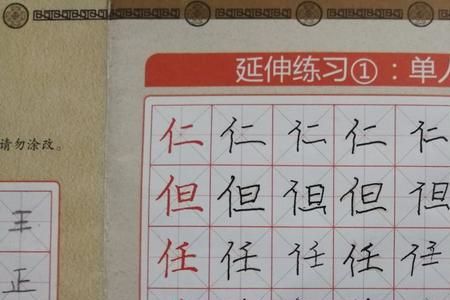 延伸练习①：单
请勿涂改。
仁仁仁仁仁
但但但但但
任任任任任
王
正